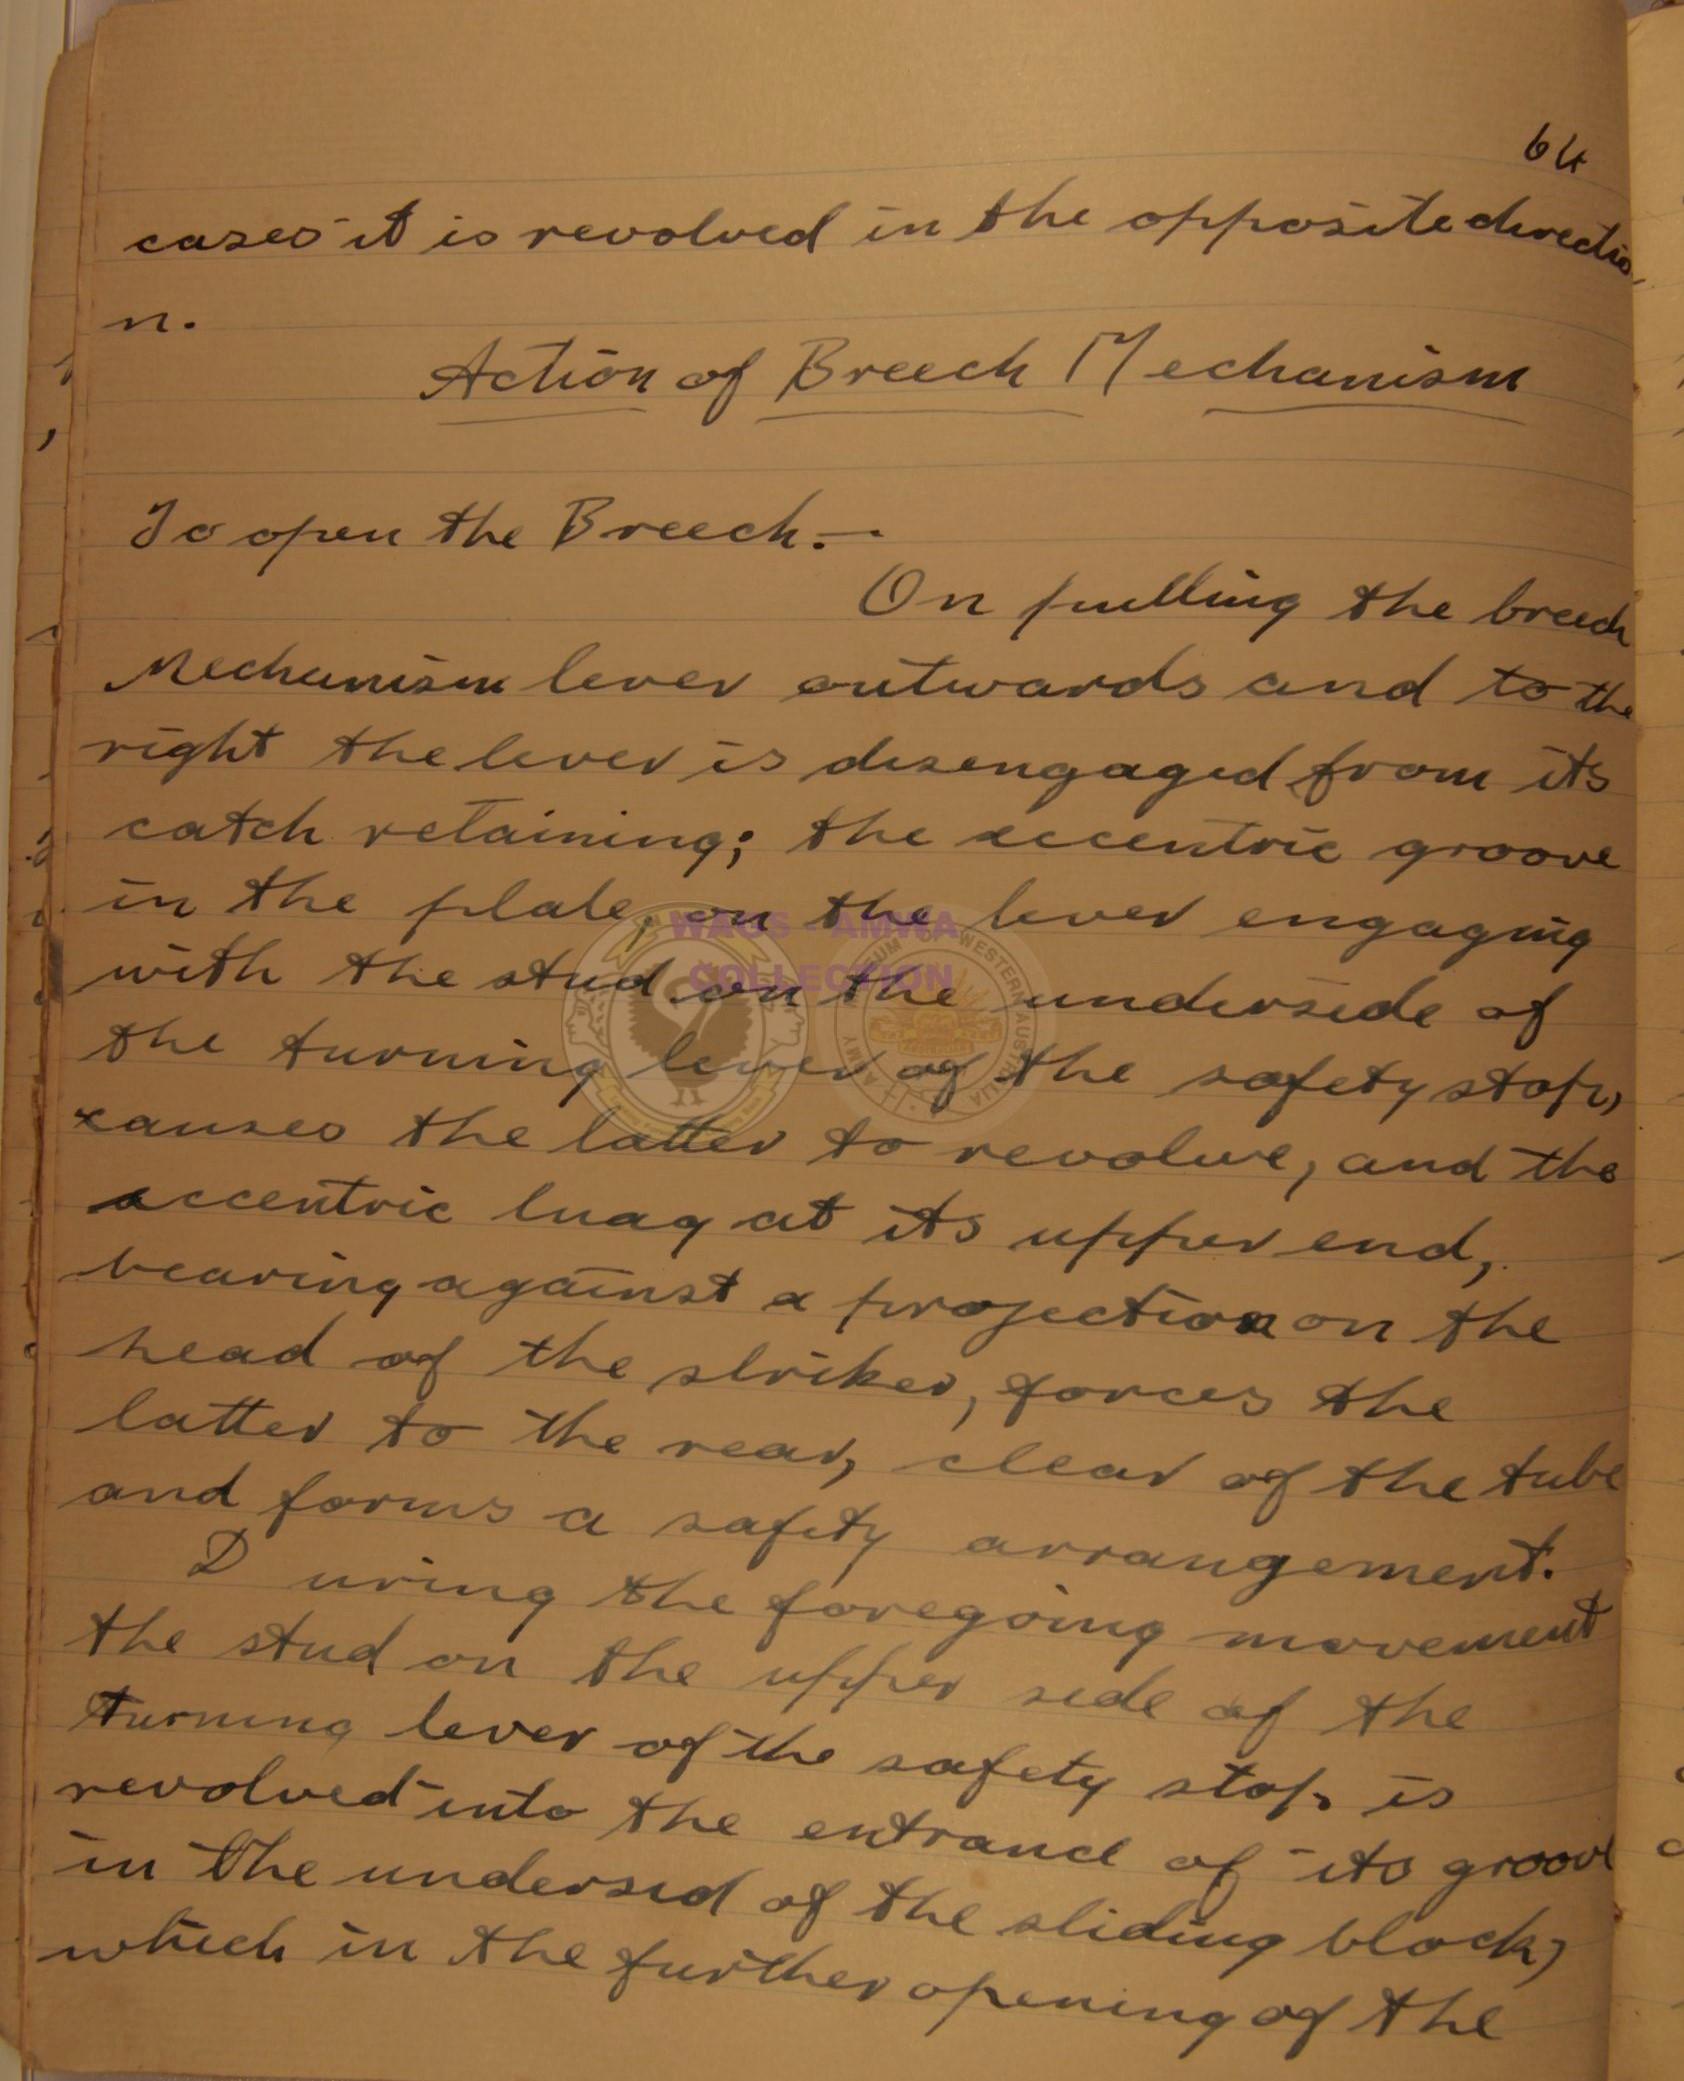 64
cases it is revolved in the opposite directio
n.
Action of Breech Mechanism
To open the Breech.-
On pulling the breech
Mechanism lever outwards and to the
right the lever is disengaged from its
catch retaining; the eccentric groove
in the plate, on the lever engaging
with the stud on the underside of
the turning lever of the safety stop,
causes the latter to revolve, and the
eccentric luag at its upper end,
bearing against a projection on the
head of the striker, forces the
latter to the rear, clear of the tube
and forms a safety arrangement.
During the foregoing movement
the stud on the upper side of the
turning lever of the safety stop is
revolved into the entrance of its groove
in the undersid of the sliding block,
which in the further opening of the
WAGS - AMWA
COLLECTION
ARMY MUSEUM OF WESTERN AUSTRALIA